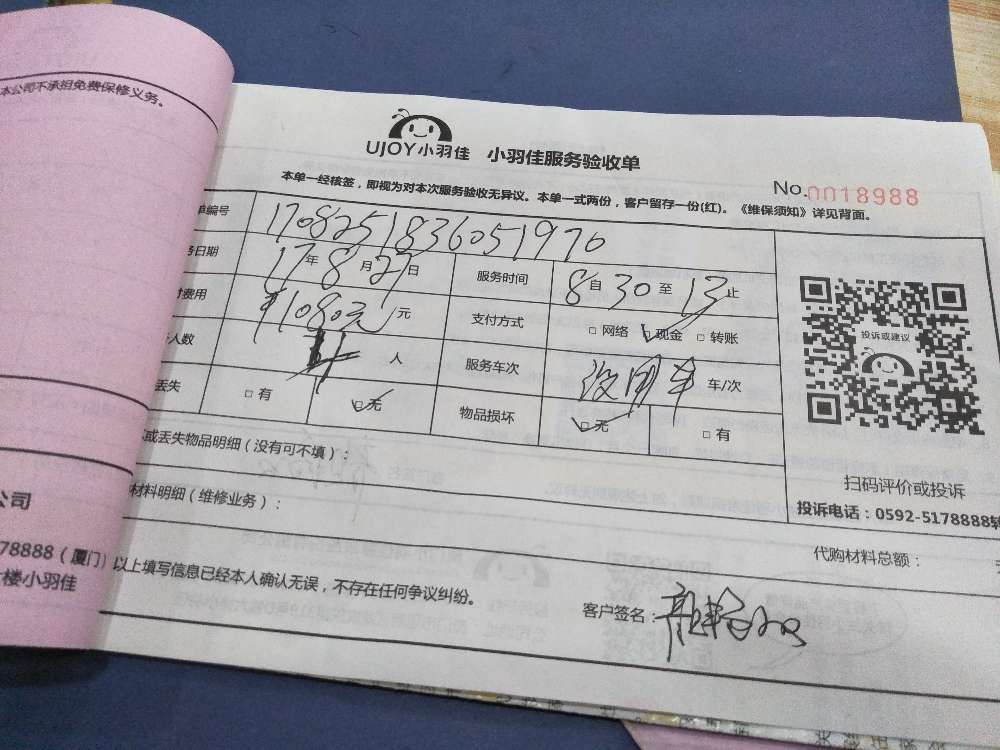 本公司不承担免费保修义务。
UJOY小羽佳 小羽佳服务验收单
No.0018988
本单一经核签，即视为对本次服务验收无异议。本单一式两份，客户留存一份(红)。《维保须知》详见背面。
单编号 1708251836051976
务日期 17年8月27日 服务时间 8自30至13止
付费用 ¥1080元 元 支付方式 □ 网络 ☑ 现金 □ 转账
人数 4 人 服务车次 没用车 车/次
丢失 □ 有 ☑ 无 物品损坏 ☑ 无 □ 有
投诉或建议
扫码评价或投诉
投诉电话：0592-5178888转
或丢失物品明细（没有可不填）：
材料明细（维修业务）：
代购材料总额：
公司
78888（厦门）
楼小羽佳
以上填写信息已经本人确认无误，不存在任何争议纠纷。
客户签名：